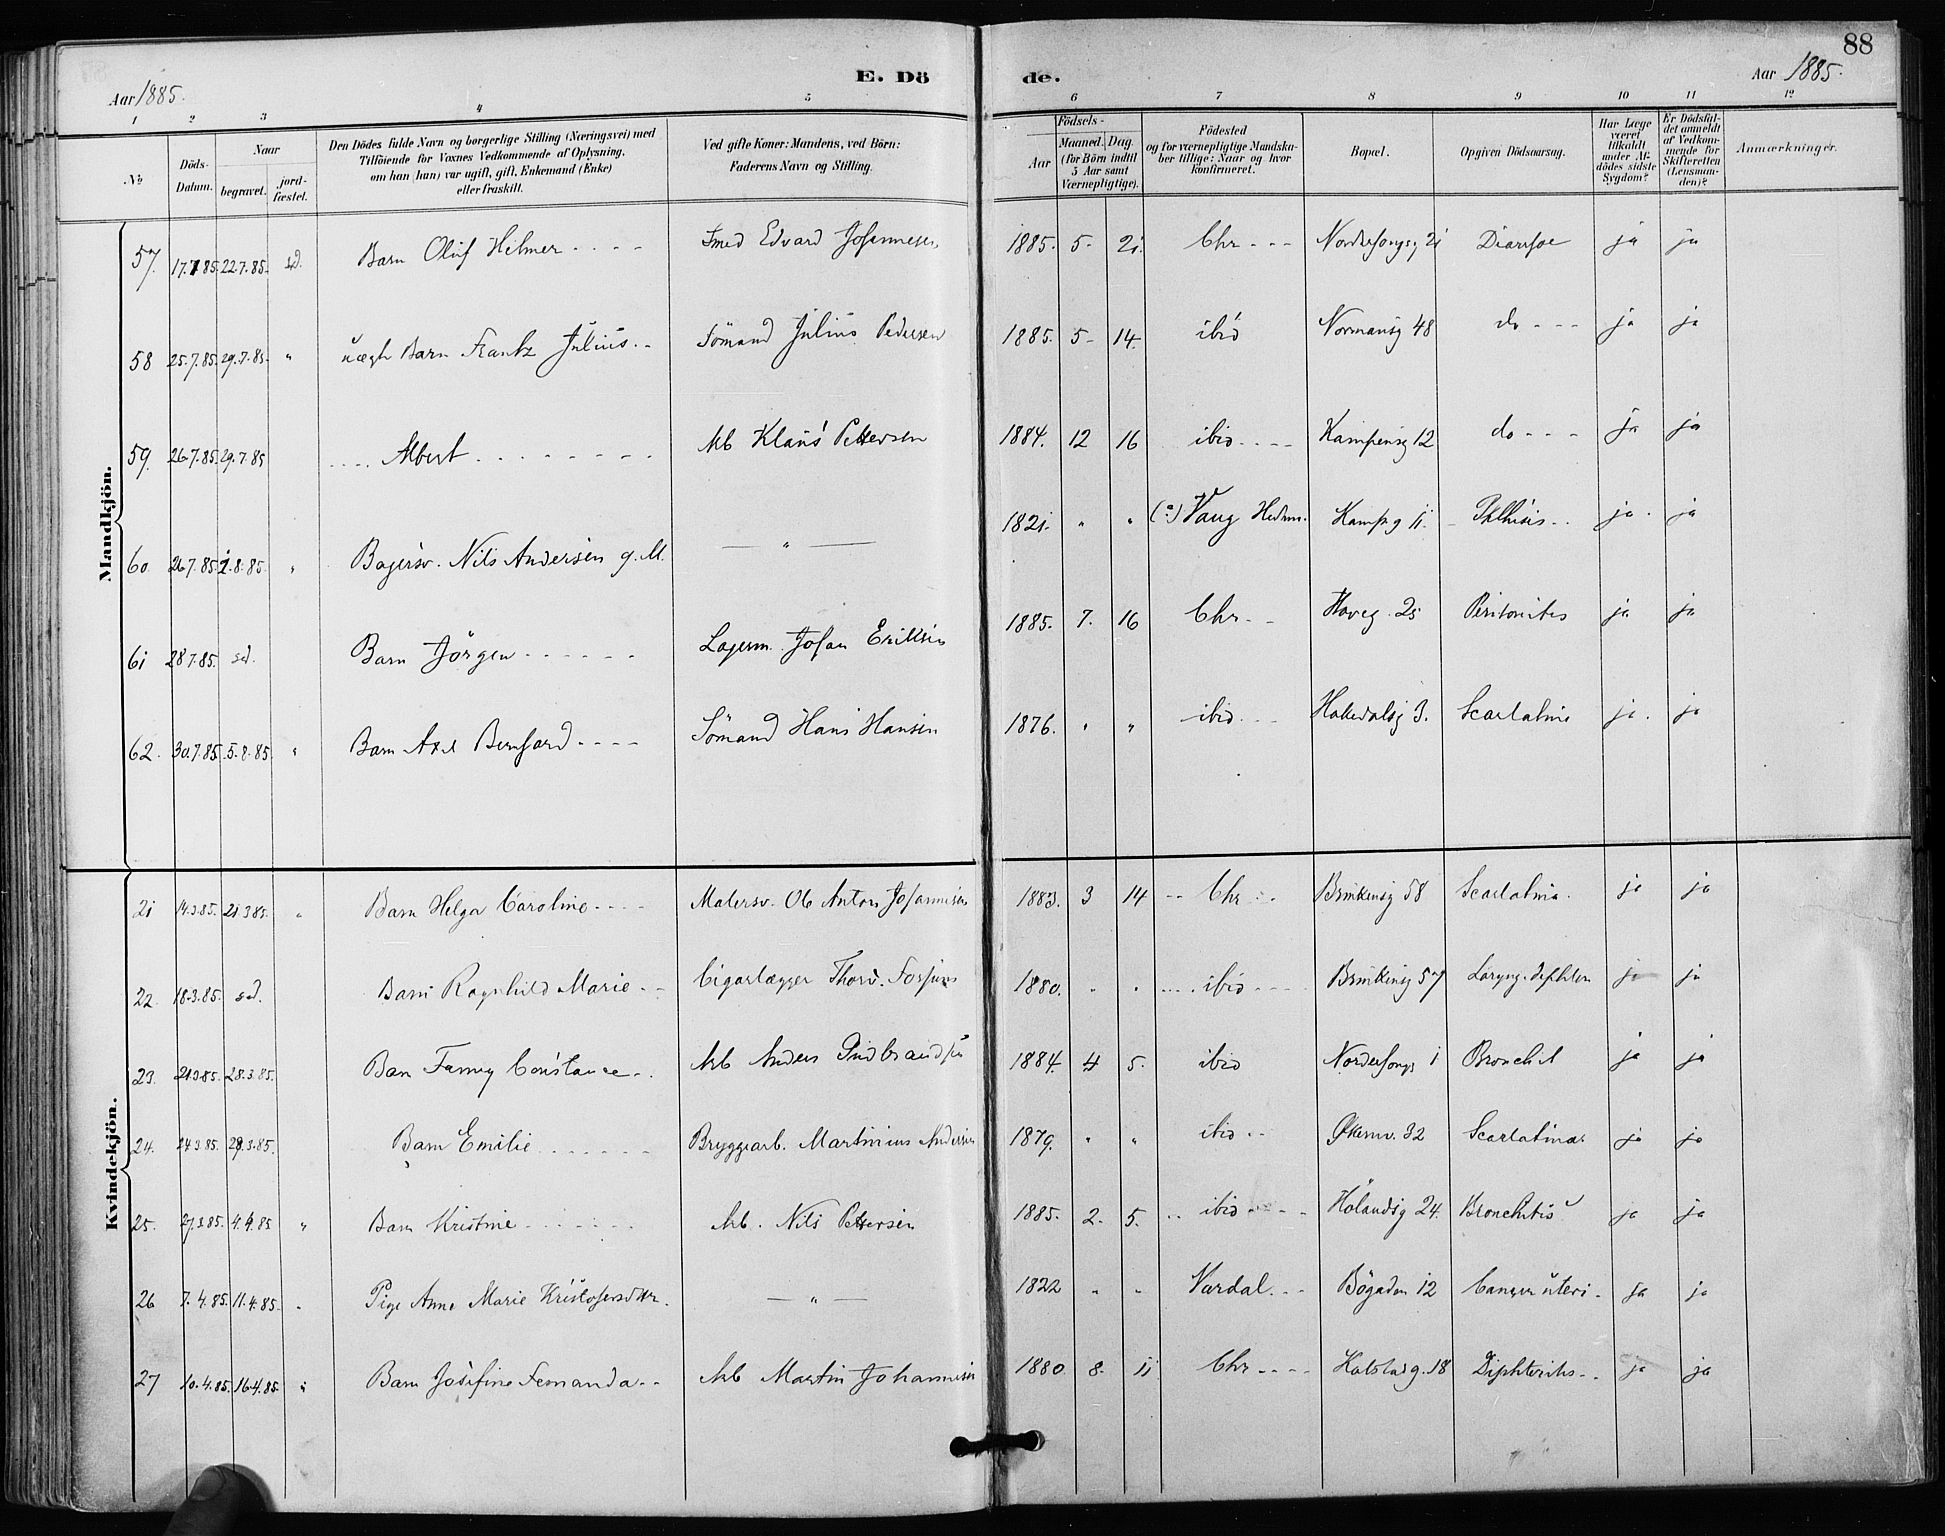 88
Aar 1885.
E. Dö
de.
Aar 1885.
1 2 3 4 5 6 7 8 9 10 11 12
No
Döds-Datum.
Naar
begravet.
jord-fæstet.
Den Dödes fulde Navn og borgerlige Stilling (Næringsvei) med
Tilföiende for Voxnes Vedkommende af Oplysning,
om han (hun) var ugift, gift, Enkemand (Enke)
eller fraskilt.
Ved gifte Koner: Mandens, ved Börn:
Faderens Navn og Stilling.
Födsels-
Aar
Maaned. Dag.
(for Börn indtil
5 Aar samt
Værnepligtige).
Födested
og for værnepligtige Mandska-
ber tillige: Naar og hvor
konfirmeret.
Bopæl.
Opgiven Dödsaarsag.
Har Læge
været
tilkaldt
under Af-
dödes sidste
Sygdom?
Er Dödsfal-
det anmeldt
af Vedkom-
mende for
Skifteretten
(Lensman-
den)?
Anmærkninger.
Mandkjön.
57. 17.7.85. 22.7.85. sd. Barn Oluf Hilmer Smed Edvard Johannesen 1885. 5 21. Chr Nordahlsg. 21 Diarrhoe ja ja
58 25.7.85. 29.7.85. " uægte Barn Frantz Julius Sömand Julius Pedersen 1885. 5 14. ibid Normansg 48 do ja ja
59. 26.7.85. 29.7.85 Albert Arb Klaus Pettersen 1884. 12 16 ibid Kampensg 12 do ja ja
60. 26.7.85. 1.8.85. " Bagersv. Nils Andersen g. M. — " — 1821. " " (?) Vang Hedm. Kampg 11. Phthisis ja. ja
61 28.7.85. sd. Barn Jörgen Lagerm. Johan Eriksen 1885. 7. 16 Chr Hoveg. 25 Peritonitis ja ja
62. 30.7.85. 5.8.85. " Barn Axel Bernhard Sömand Hans Hansen 1876. " " ibid Hakedalsg 3. Scarlatina ja. ja
Kvindekjön.
21 14.3.85. 21.3.85. " Barn Helga Caroline Malersv. Ole Anton Johannesen 1883. 3 14 Chr Brinkensg 58 Scarlatina. ja ja
22. 18.3.85. sd. Barn Ragnhild Marie Cigarlægger Thorv. 1880. " " ibid Brinkensg 57 Laryng. ja ja
23. 21.3.85. 28.3.85. Barn Fanny Constance Arb Anders Gudbrandsen 1884. 4 5. ibid 1 Bronchit ja ja
24. 24.3.85. 29.3.85. Barn Emilie Bryggearb. Martinius Andersen 1879. " " ibid Økernv. 32 Scarlatina ja ja
25. 27.3.85. 4.4.85 " Barn Kristine Arb. Nils Pettersen 1885. 2. 5. ibid Hölandsg 24. Bronchitis ja ja
26 7.4.85. 11.4.85. " Pige Anne Marie Kristofersdttr. — " — 1822 " " Vardal Bögaden 12 Cancer uteri. ja ja
27 10.4.85. 16.4.85. " Barn Josefine Fernanda Arb Martin Johannesen 1880. 8. 11 Chr Halstadg. 18 Diphteritis ja ja